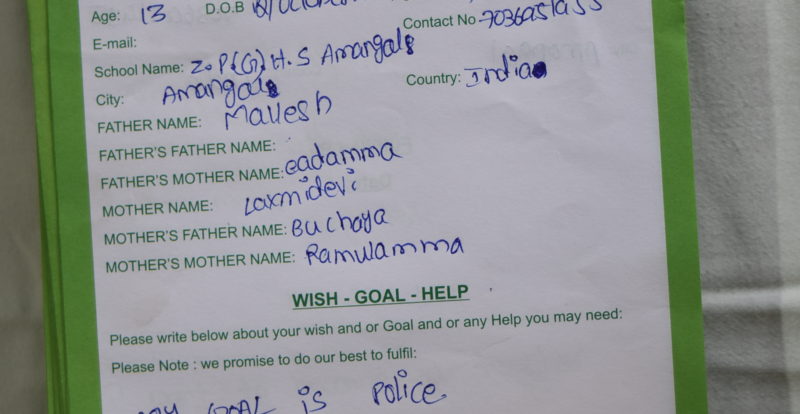 Age: 13 D.O.B
E-mail: Contact No-7036951953
School Name: Z.P(G) H.S Amangals
City: Amangals Country: India
FATHER NAME: Mallesh
FATHER'S FATHER NAME:
FATHER'S MOTHER NAME: eadamma
MOTHER NAME: Laxmidevi
MOTHER'S FATHER NAME: Buchaya
MOTHER'S MOTHER NAME: Ramulamma
WISH - GOAL - HELP
Please write below about your wish and or Goal and or any Help you may need:
Please Note : we promise to do our best to fulfil:
GOAL is Police